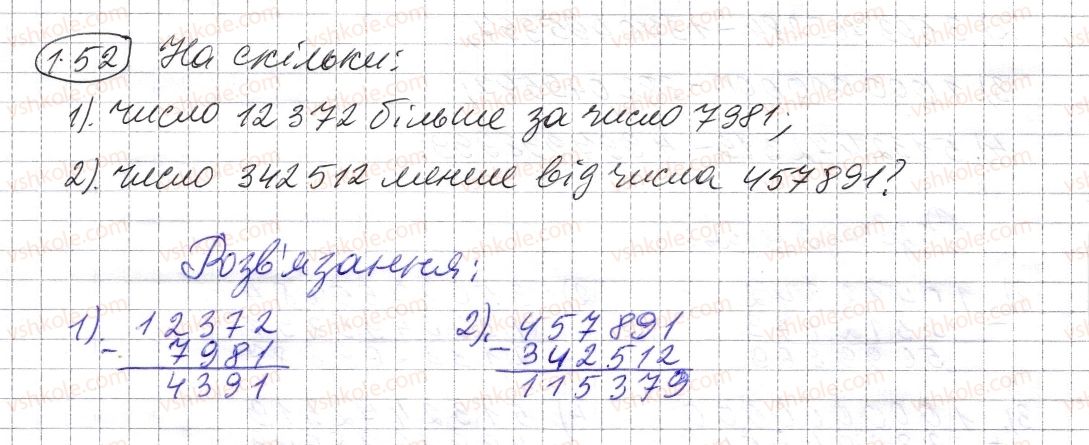 1.52 На скільки:
1). число 12372 більше за число 7981;
2). число 342512 менше від числа 457891?
Розв'язання:
1). 12372
- 7981
4391
2). 457891
- 342512
115379